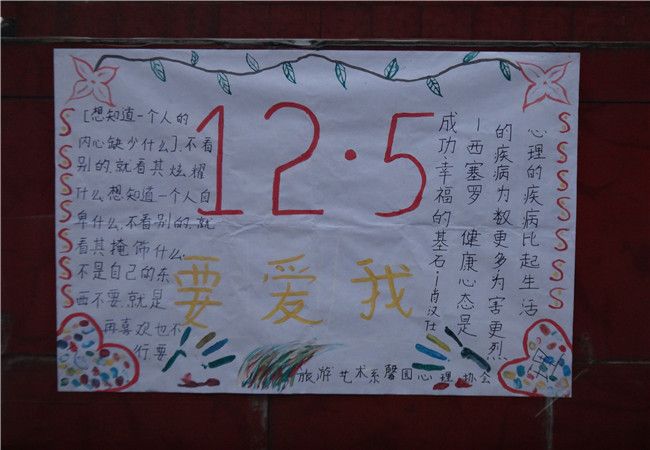 12·5
[想知道一个人的
内心缺少什么],不看
别的,就看其炫耀
什么,想知道一个人自
卑什么,不看别的,就
看其掩饰什么
不是自己的东
西不要,就是
再喜欢也不
行要
心理的疾病比起生活
的疾病为数更多为害更烈
-西塞罗 健康心态是
成功·幸福的基石-肖汉仕
要爱我
旅游艺术系馨园心理协会